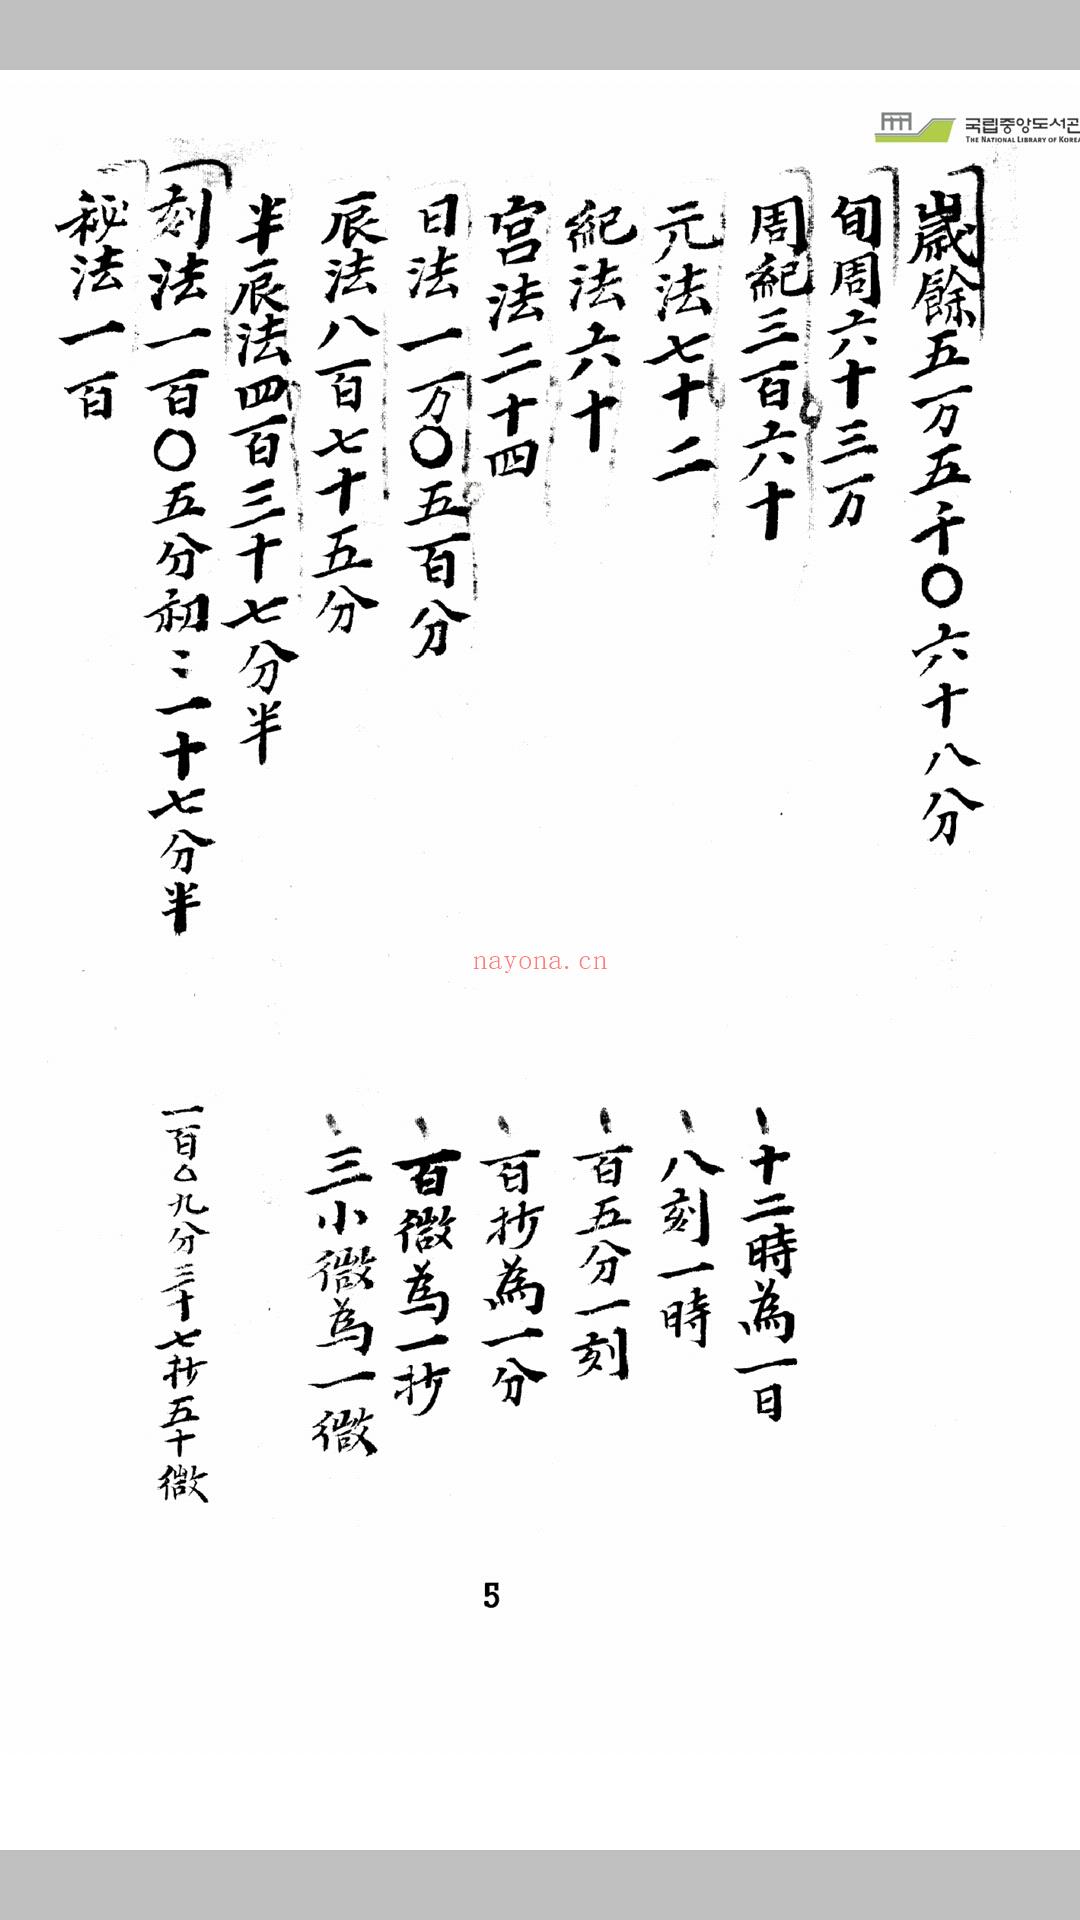 국립중앙도서관
THE NATIONAL LIBRARY OF KOREA
歲餘五万五千〇六十八分
旬周六十三万
周紀三百六十
元法七十二
紀法六十
宮法二十四
日法一万〇五百分
辰法八百七十五分
半辰法四百三十七分半
刻法一百〇五分初〻一十七分半
秘法一百
十二時為一日
八刻一時
百五分一刻
百抄為一分
百微為一抄
三小微為一微
一百〇九分三十七抄五十微
nayona.cn
5